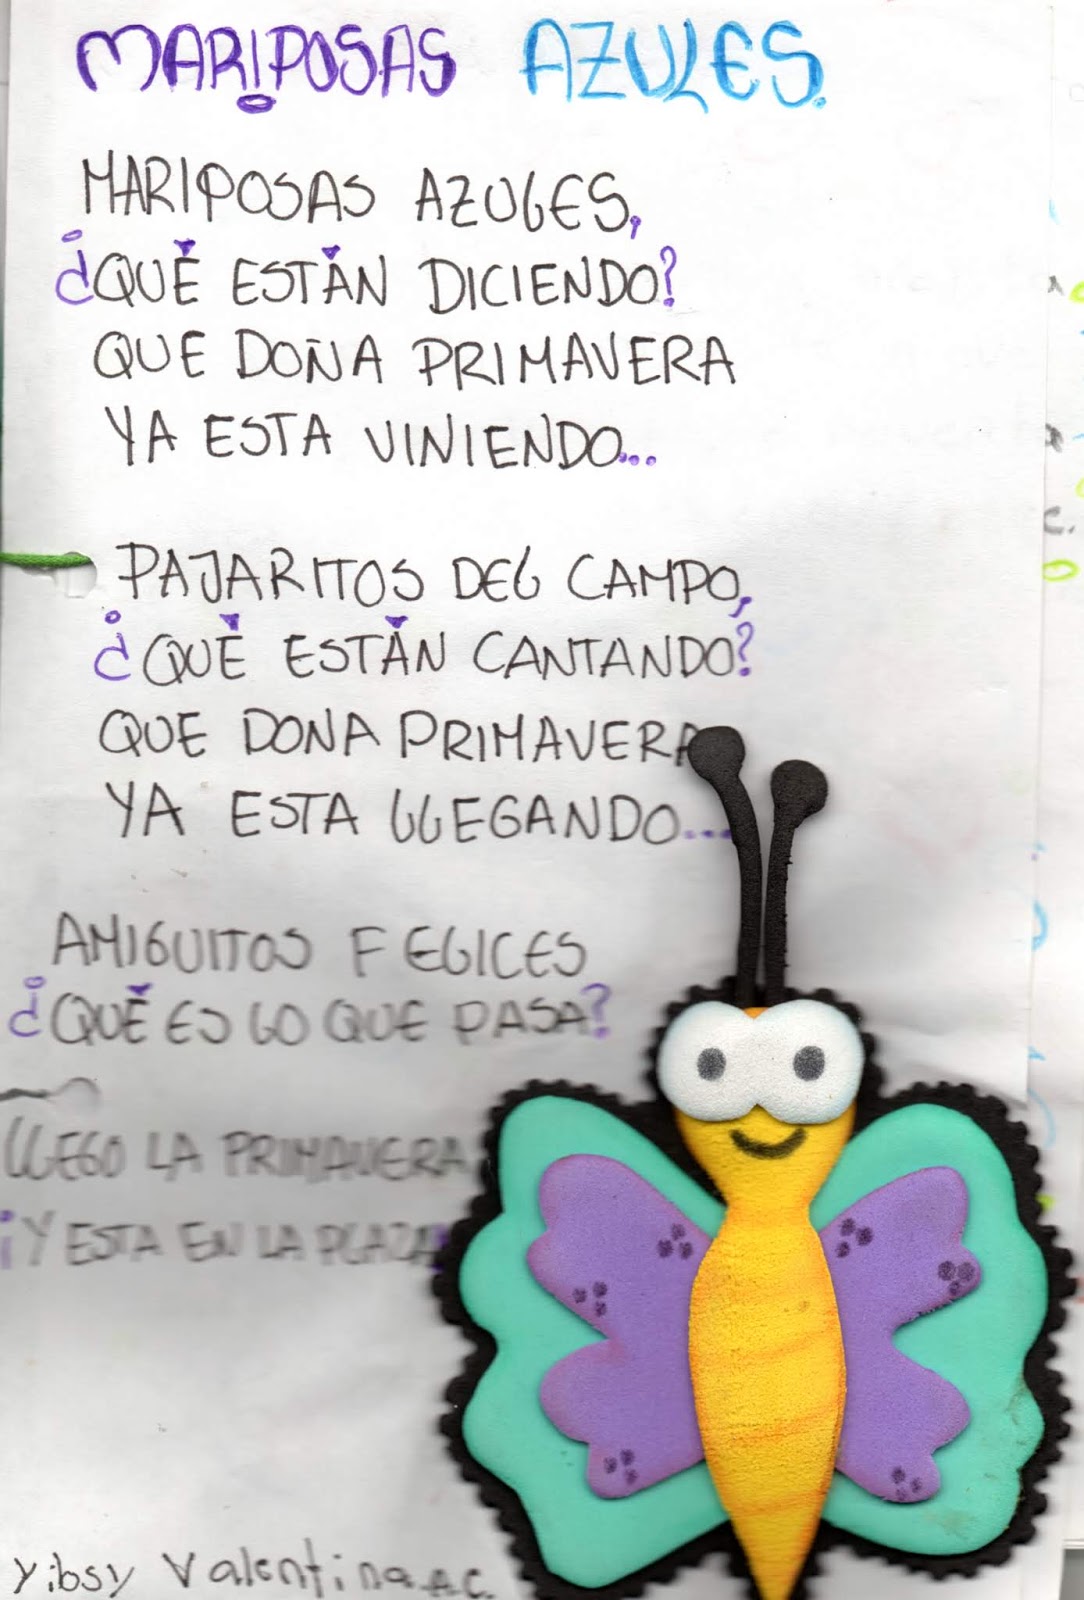 MARIPOSAS AZULES.
MARIPOSAS AZULES,
¿QUÉ ESTÁN DICIENDO?
QUE DOÑA PRIMAVERA
YA ESTA VINIENDO...
PAJARITOS DEL CAMPO,
¿QUÉ ESTÁN CANTANDO?
QUE DONA PRIMAVERA
YA ESTA LLEGANDO...
AMIGUITOS FELICES
¿QUÉ ES LO QUE PASA?
LLEGO LA PRIMAVERA
¡Y ESTA EN LA PLAZA!
Yibsy Valentina A.C.